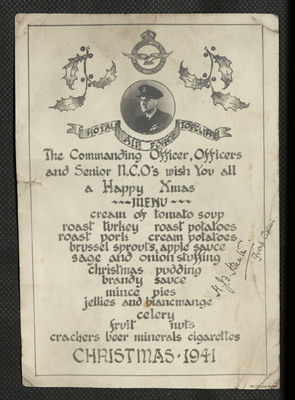 ROYAL AIR FORCE TOPCLIFFE
The Commanding Officer, Officers
and Senior N.C.O's wish You all
a Happy Xmas
MENU
cream of tomato soup
roast turkey roast potatoes
roast pork cream potatoes
brussel sprouts, apple sauce
sage and onion stuffing
christmas pudding
brandy sauce
mince pies
jellies and blancmange
celery
fruit nuts
crackers beer minerals cigarettes
CHRISTMAS · 1941